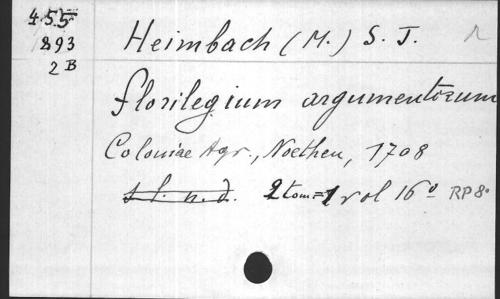 455
893
2 B
Heimbach (M.) S. J.
florilegium argumentorum
Coloniae Agr., Noethen, 1708
s l. n. d. 2 tom = 1 vol 16º RP 8º